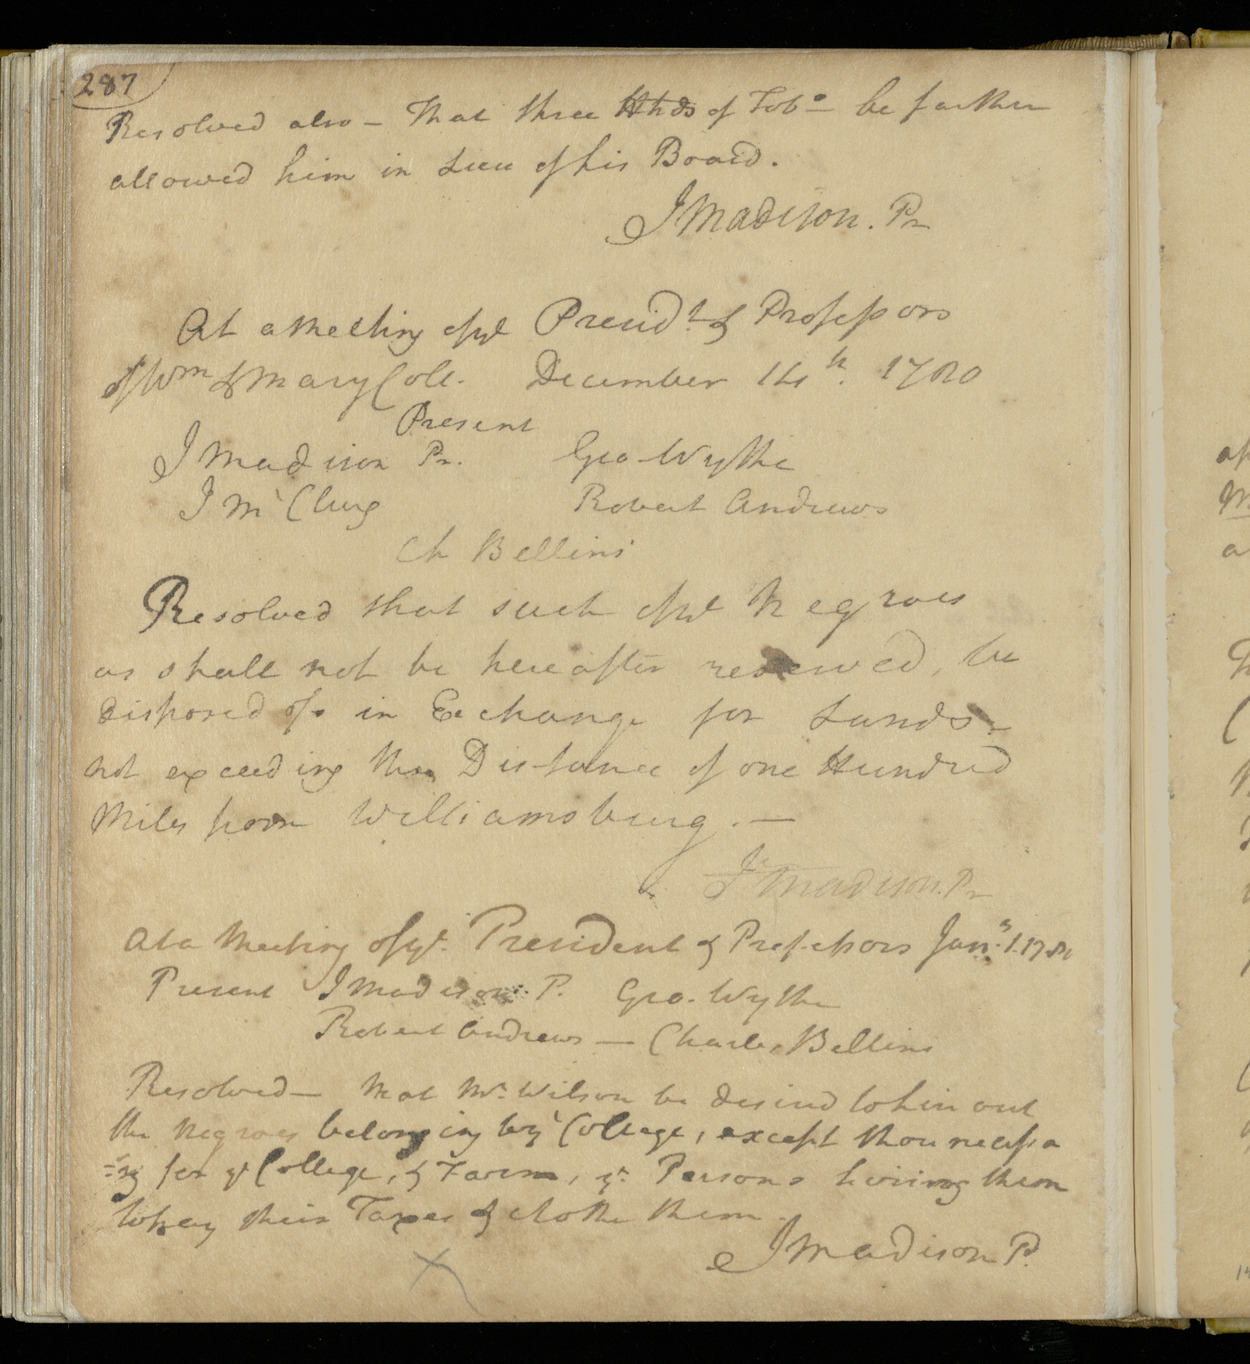 287
Resolved also – That three Hhds of Tobo – be farther
allowed him in Lieu of his Board.
J Madison. Pr
At a Meeting of ye Presidt. & Professors
of Wm & Mary Coll. December 14th. 1780
Present
J Madison Pr. Geo Wythe
J McClurg Robert Andrews
Ch Bellini
Resolved that such of ye Negroes
as shall not be hereafter reserved, be
disposed of in Exchange for Lands
not exceeding the Distance of one Hundred
Miles from Williamsburg. —
J Madison. Pr
At a Meeting of ye. President & Professors Jany. 1. 178
Present J Madison P. Geo. Wythe
Robert Andrews — Charles Bellini
Resolved— that Mr. Wilson be desired to hire out
the Negroes belonging to ye College, except those necessa
=ry for ye College, & Farm, ye. Persons hiring them
to pay their Taxes & clothe them.
J Madison P.